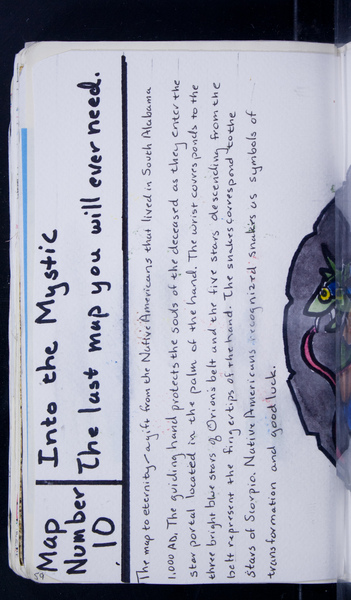 Map
Number
10
Into the Mystic
The last map you will ever need.
The map to eternity - a gift from the Native Americans that lived in South Alabama
1,000 AD. The guiding hand protects the souls of the deceased as they enter the
star portal located in the palm of the hand. The wrist corresponds to the
three bright blue stars of Orion's belt and the five stars descending from the
belt represent the fingertips of the hand. The snakes correspond to the
stars of Scorpio. Native Americans recognized snakes as symbols of
transformation and good luck.
59